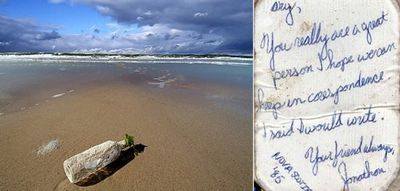 You really are a great
person I hope we can
keep in correspondence.
I said I would write.
Your friend always,
Jonathon
NOVA SCOTIA
'85